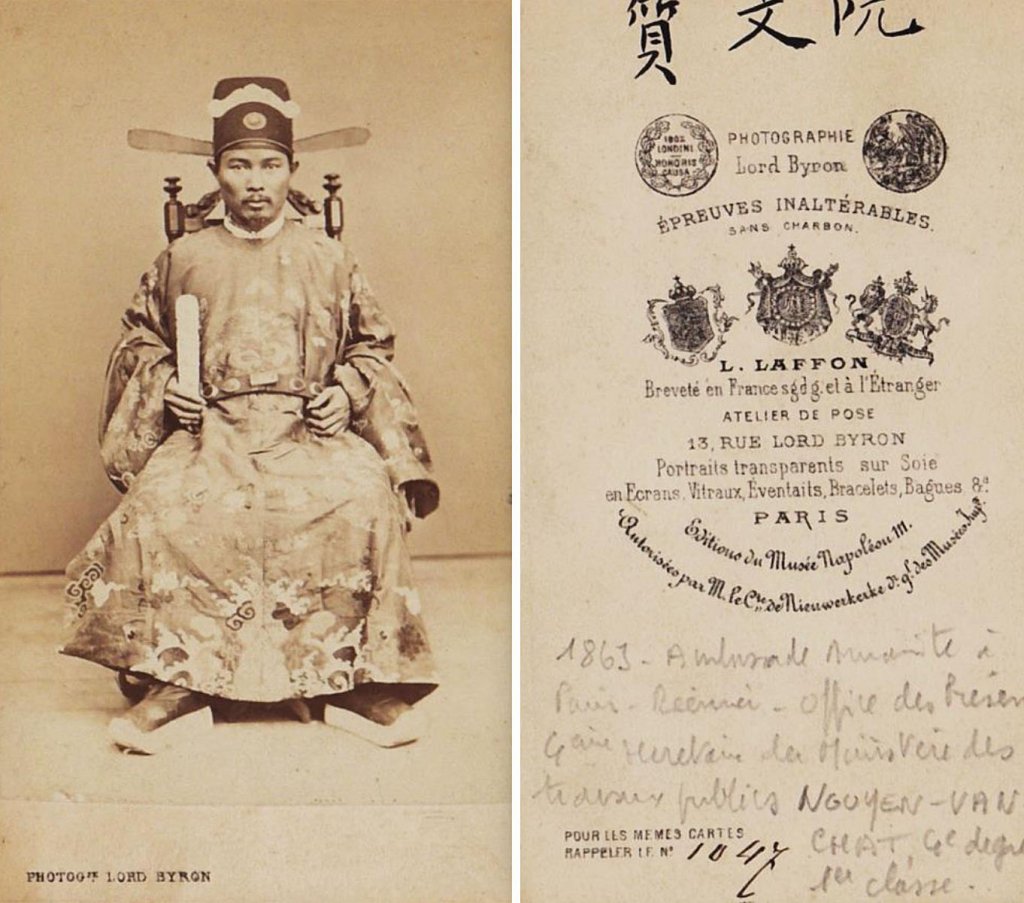 PHOTOG^IE LORD BYRON
質文阮
1862
LONDINI
HONORIS
CAUSA
PHOTOGRAPHIE
Lord Byron
ÉPREUVES INALTÉRABLES.
SANS CHARBON.
L. LAFFON
Breveté en France sgdg. et à l'Étranger
ATELIER DE POSE
13, RUE LORD BYRON
Portraits transparents sur Soie
en Ecrans, Vitraux, Eventails, Bracelets, Bagues &ª
PARIS
Editions du Musée Napoléon III.
Autorisées par M. le Cte de Nieuwerkerke Dr gl des Musées Impx
1863 - Ambassade Annamite à
Paris - - Office des Présen
4ème secretaire du Ministère des
travaux publics NGUYEN-VAN
CHAT, 4e degré
1ère classe.
POUR LES MEMES CARTES
RAPPELER LE Nº 1047